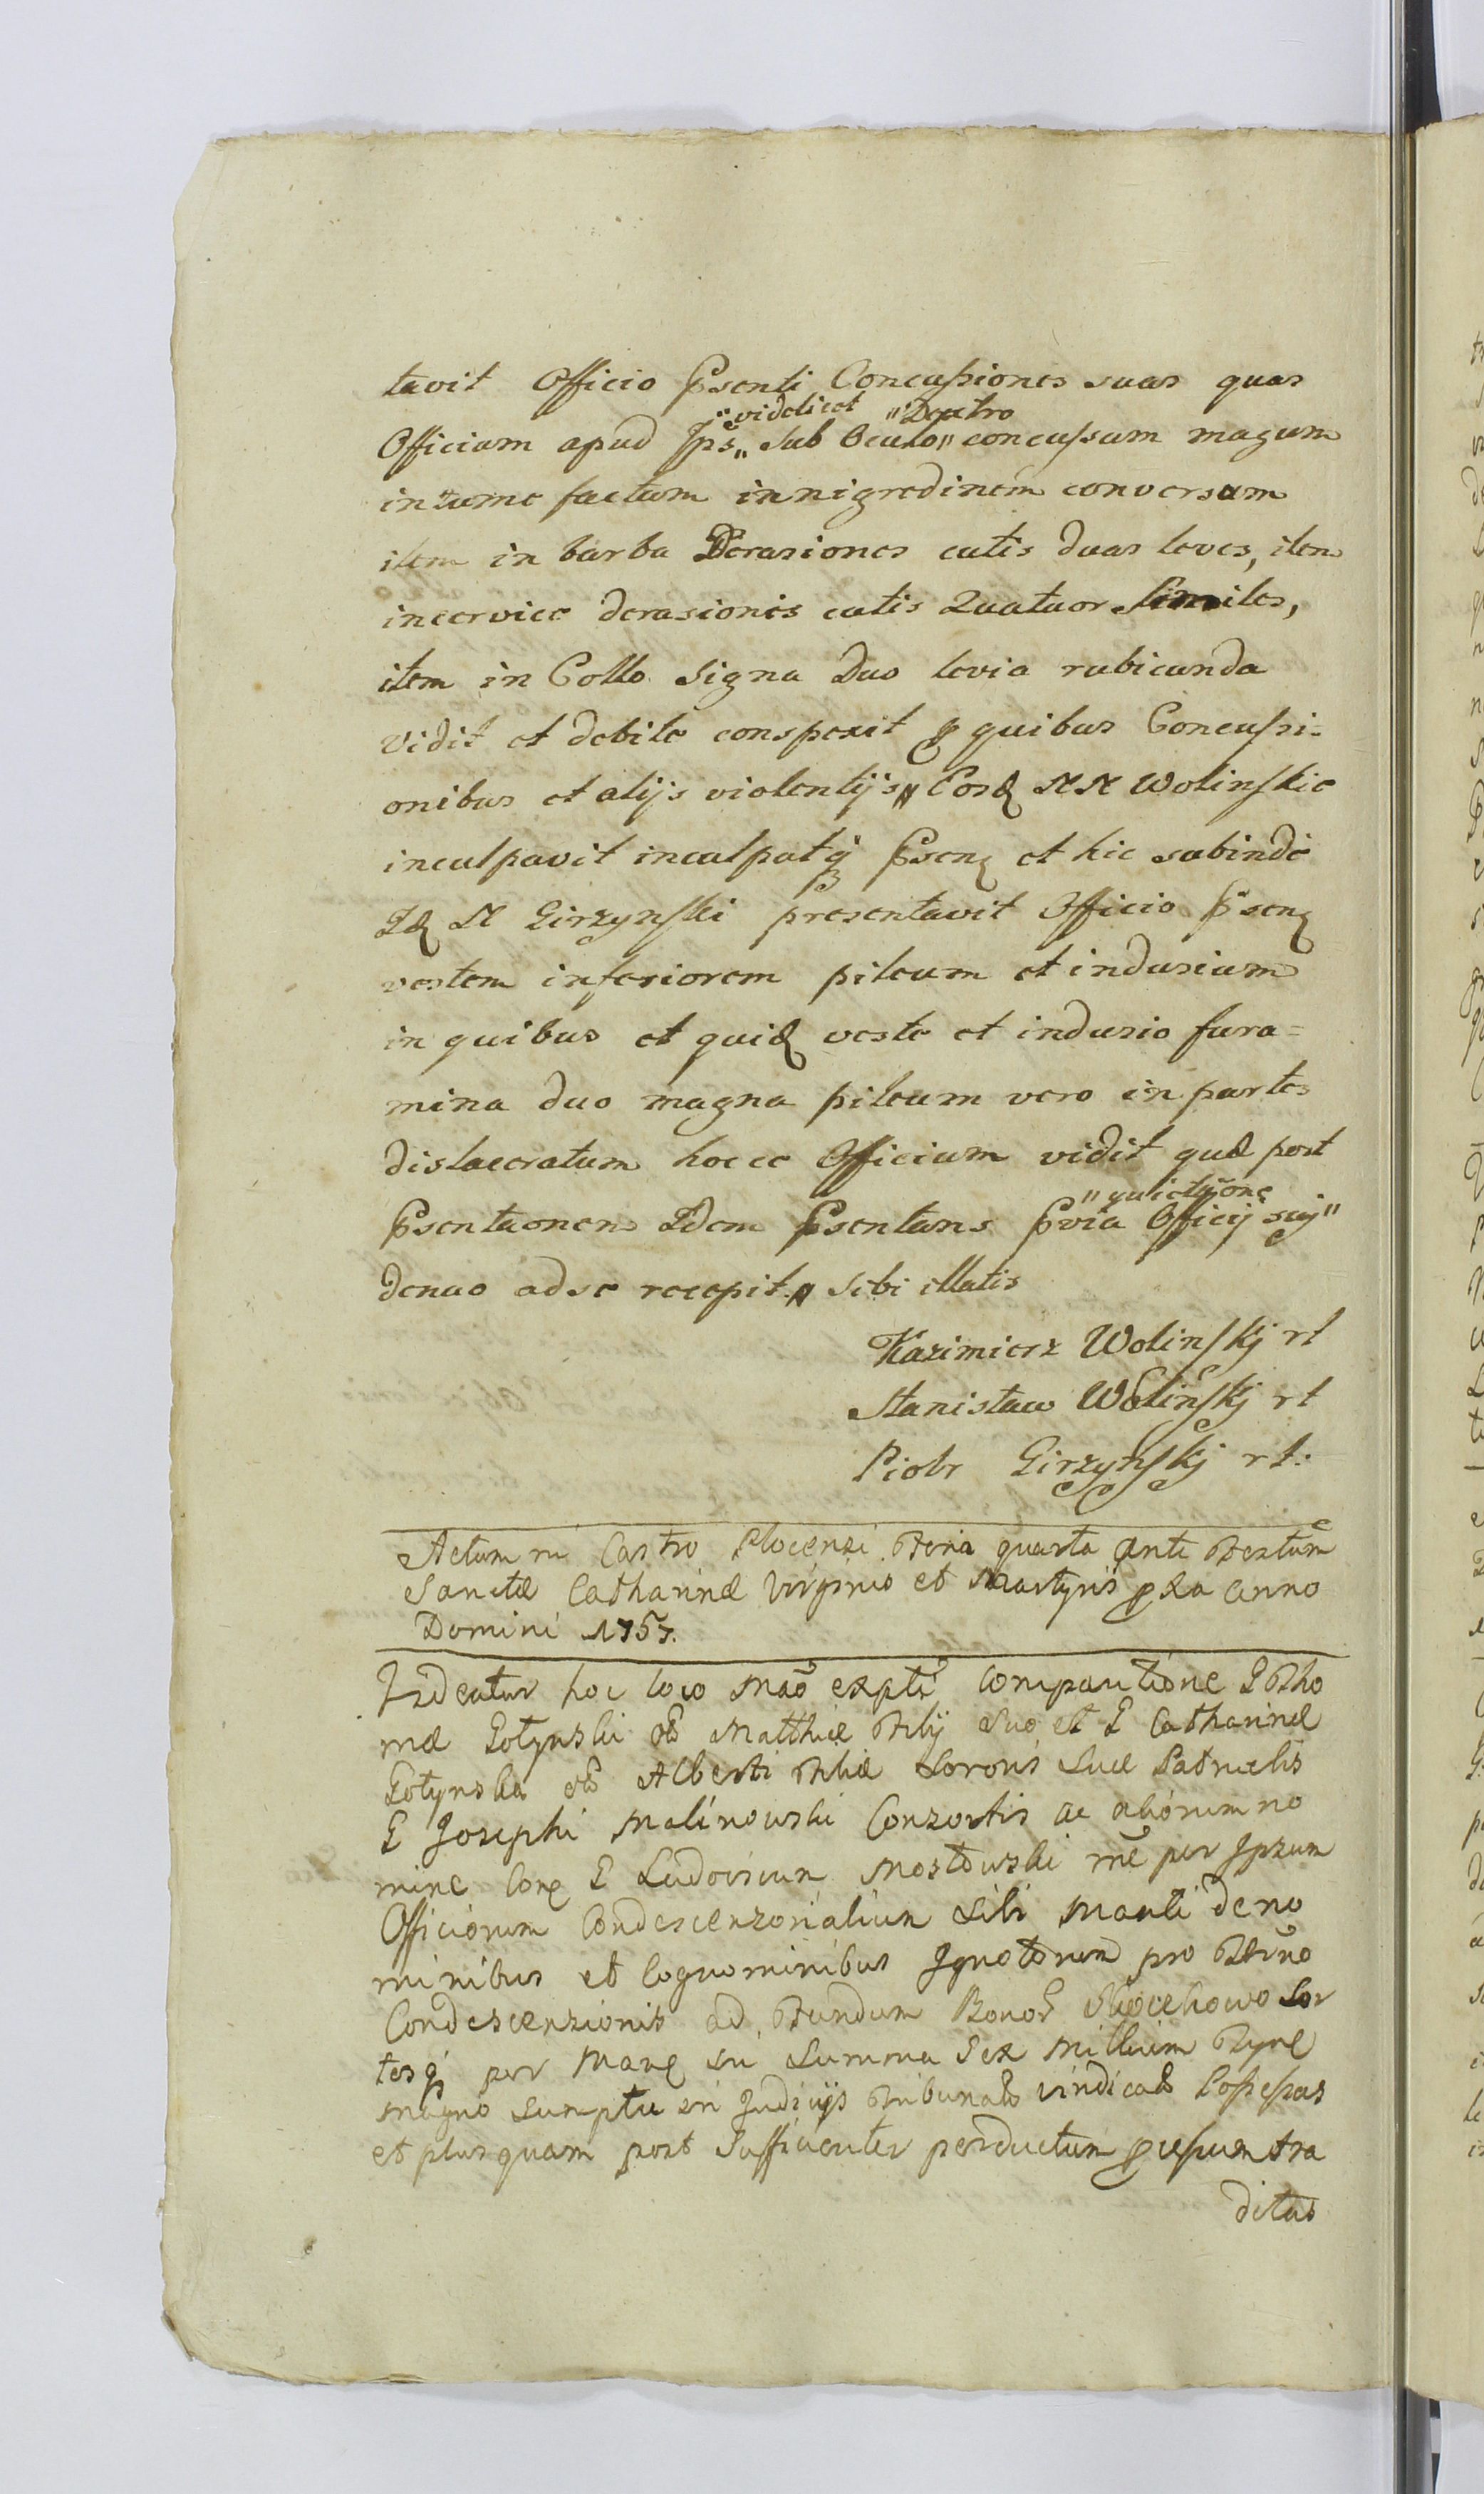 tavit Officio Psenti Concussiones suas quas
"videlicet "Dextro
Officium apud Ips" Sub Oculo" concussum magum
intume factum innigredinem conversam
item in barba Derasiones cutis duas leves, item
incervice derasiones cutis Quatuor Similes,
item in Collo Signa Duo levia rubicunda
vidit et debite conspexit p quibus Concussi=
onibus et alijs violentijs Eosd MM Wolinskie
inculpavit inculpatq Psen et hic subinde
Id M Girzynski presentavit Officio Psen
vestem inferiorem pileum et indusium
in quibus et quid veste et indusio fura=
mina duo magna pileum vero in partes
dislaceratum hocce Officium vidit quæ post
"quietaone
Psentaonem Idem Psentans Pvia Officij sui"
denuo adse recepit Sibi illatis
Kazimierz Wolinskj rt
Stanisław Wolinskj rt
Piotr Girzynskj rt:
Actum in Castro Plocensi Feria quarta ante Festum
Sanctæ Catharinæ Virginis et Martyris pxa Anno
Domini 1757.
Videatur hoc loco
mæ Gołynski Matthiæ Filij Suo et G Catharinæ
Gołynska Alberti Filiæ Sororis Suæ Patruelis
G Josephi Malinowski Consortis ac aliorum no
mine G Ludovicum Mostowski per Ipsum
Officiorum Condescensorialium Sibi de no
minibus et Cognominibus Ignotorum pro
Condescensionis ad Fundum Bonor Sor
tesq per in Summa Sex Millium
magno Sumptu in Judicijs vindicat Possessas
et plusquam post Sufficienter perductum pcessum tra
ditas